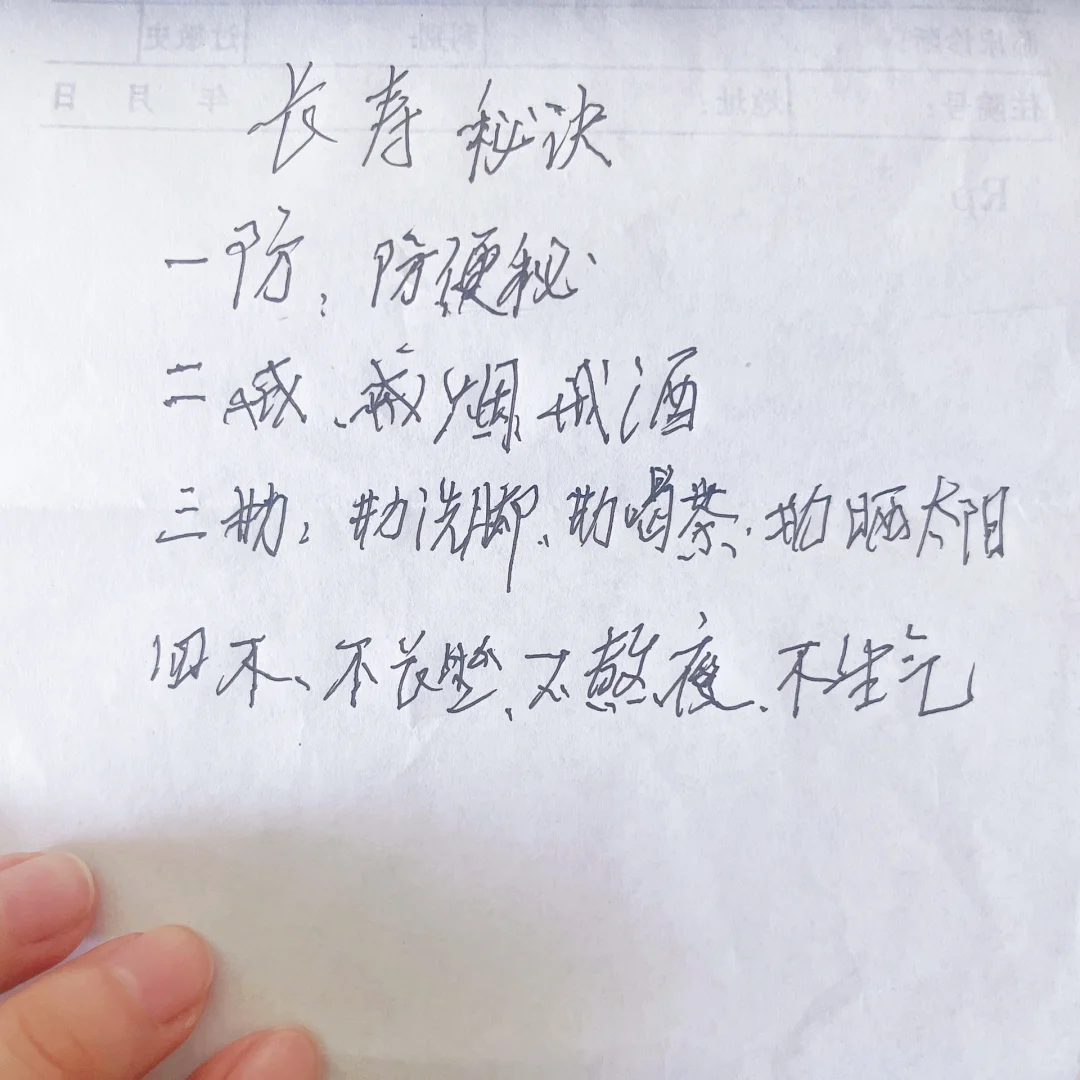 长寿秘诀
一防：防便秘.
二戒、戒烟戒酒
三勤：勤洗脚、勤喝茶、勤晒太阳
四不、不长坐、不熬夜、不生气
过敏史
科别:
临床诊断:
年 月 日
地址:
住院号:
Rp